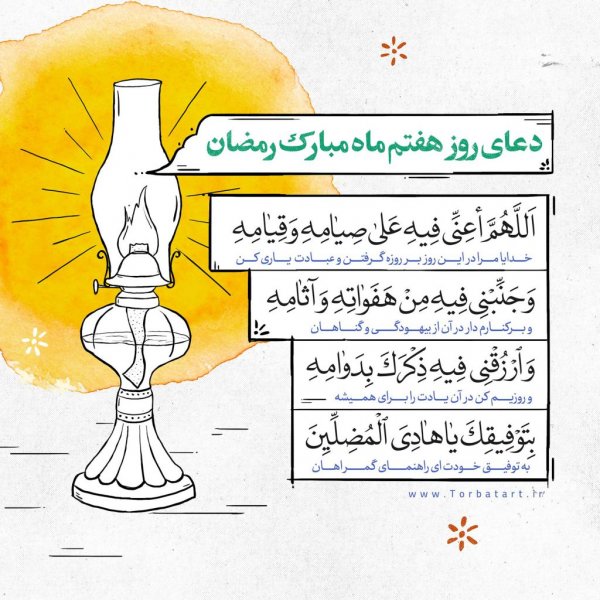 دعای روز هفتم ماه مبارک رمضان
اَللَّهُمَّ أَعِنِّی فِیهِ عَلیٰ صِیَامِهِ وَ قِیَامِهِ
خدایا مرا در این روز بر روزه گرفتن و عبادت یاری کن
وَ جَنِّبْنِی فِیهِ مِنْ هَفَوَاتِهِ وَ آثَامِهِ
و برکنارم دار در آن از بیهودگی و گناهان
وَ ٱرْزُقْنِی فِیهِ ذِکْرَكَ بِدَوَامِهِ
و روزیم کن در آن یادت را برای همیشه
بِتَوْفِیقِكَ یَا هَادِیَ ٱلْمُضِلِّینَ
به توفیق خودت ای راهنمای گمراهان
www.Torbatart.ir